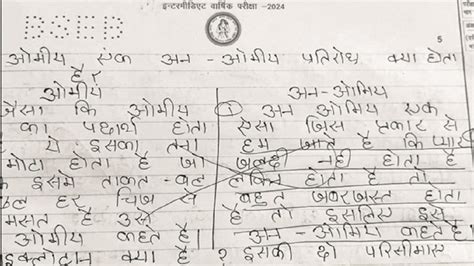 इन्टरमीडिएट वार्षिक परीक्षा -2024
BSEB
5
ओमीय एंक अन - ओमीय प्रतिरोध क्या होता
है?
ओमीय
अन-ओमिय
जैसा कि ओमीय
① अन ओमिय एक
का पदार्थ होता
ऐसा जिस प्रकार से
ये इसका तना
हम जानते है कि प्यार
मोटा होता है जो
जल्दी नही होता है
इसमे ताकत-वल
लेकिन होता है तो
हर चिज से
बहुत जबरजस्त होता
मसत है उसे
है तो इसलिए इसे
ओमीय कहते है।
अन - ओमीय कहते है।
इक्लोट्रान क्या है? इसकी दो परिसीमाए